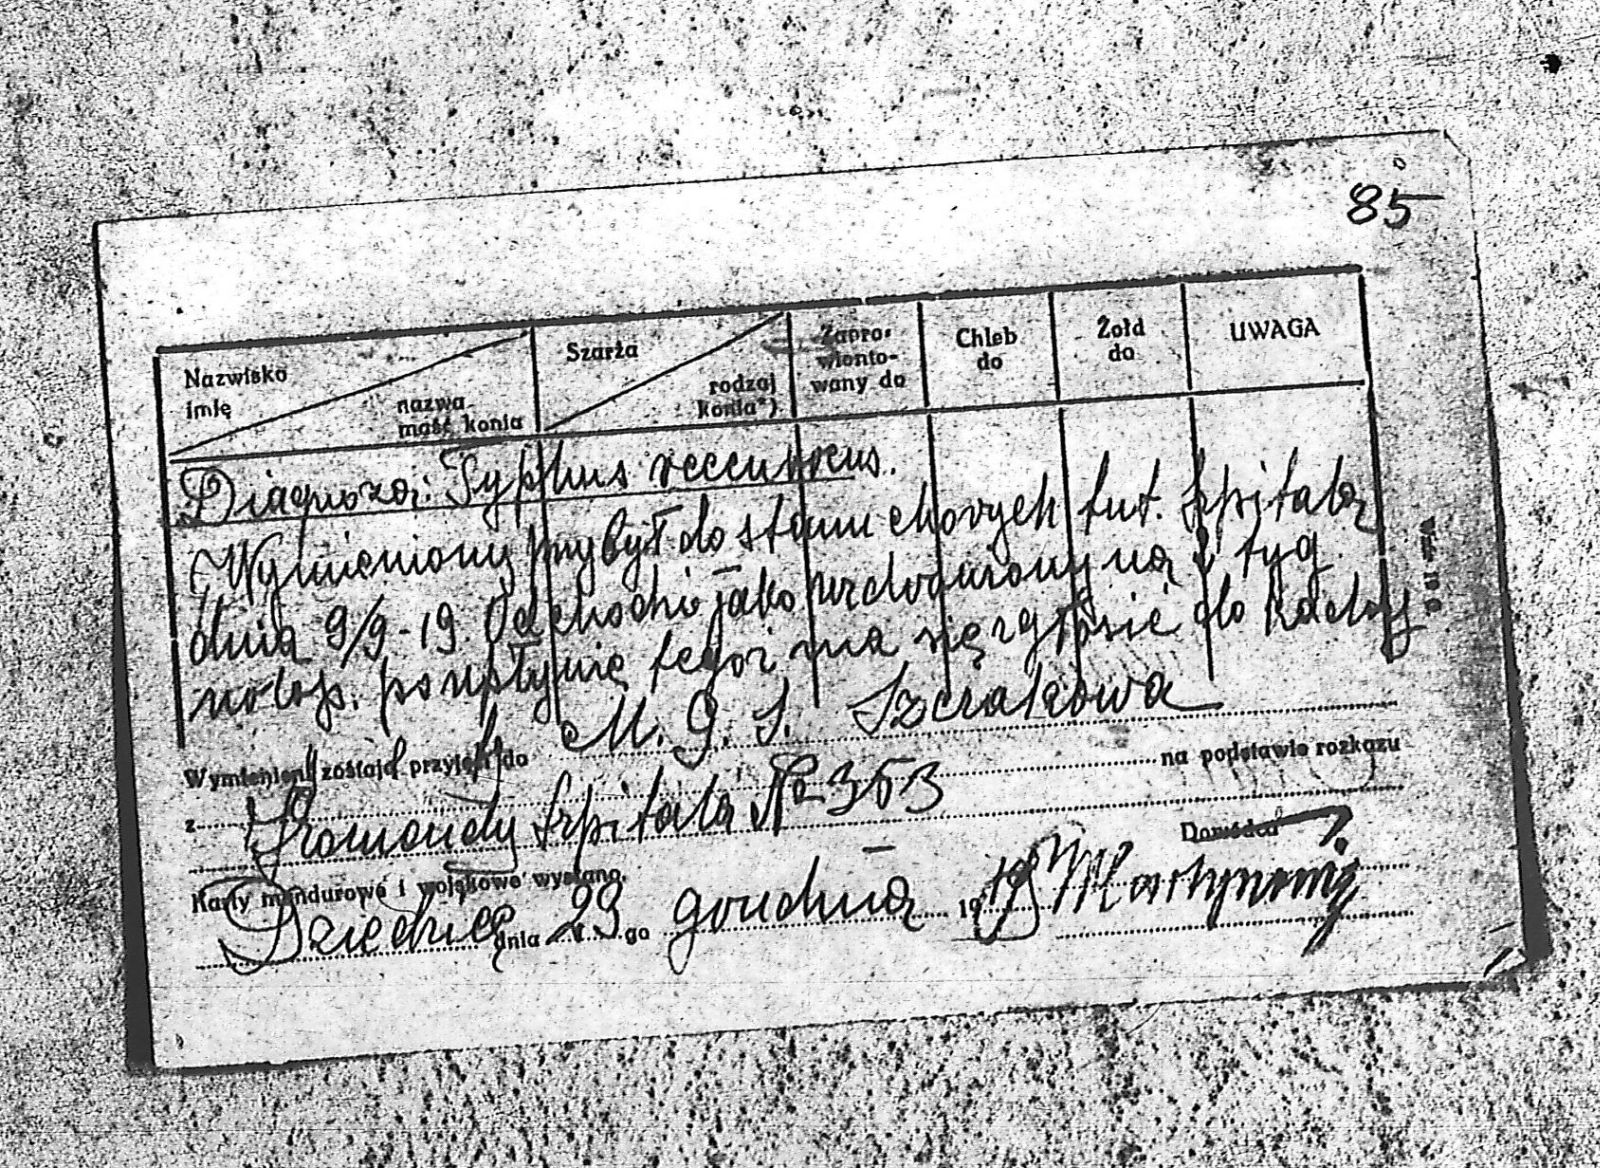 85
Nazwisko
imię
nazwa
maść konia
Szarża
rodzaj
konia*)
Zapro-
wianto-
wany do
Chleb
do
Żołd
do
UWAGA
Diagnoza: Typhus reccurrens.
Wymieniony przybył do stanu chorych tut. Szpitala
dnia 9/9-19. Odchodzi jako uzdrowiony na tyg.
po upłynię tegoż ma się zgłosić do Kadry
M. G. S. Szczakowa
Wymienieni zostają przyjęci do
na podstawie rozkazu
z Komendy Szpitala № 353
Dowódca
Karty mundurowe i wojskowe wysłano.
Dziedzice dnia 29 go grudnia 1919